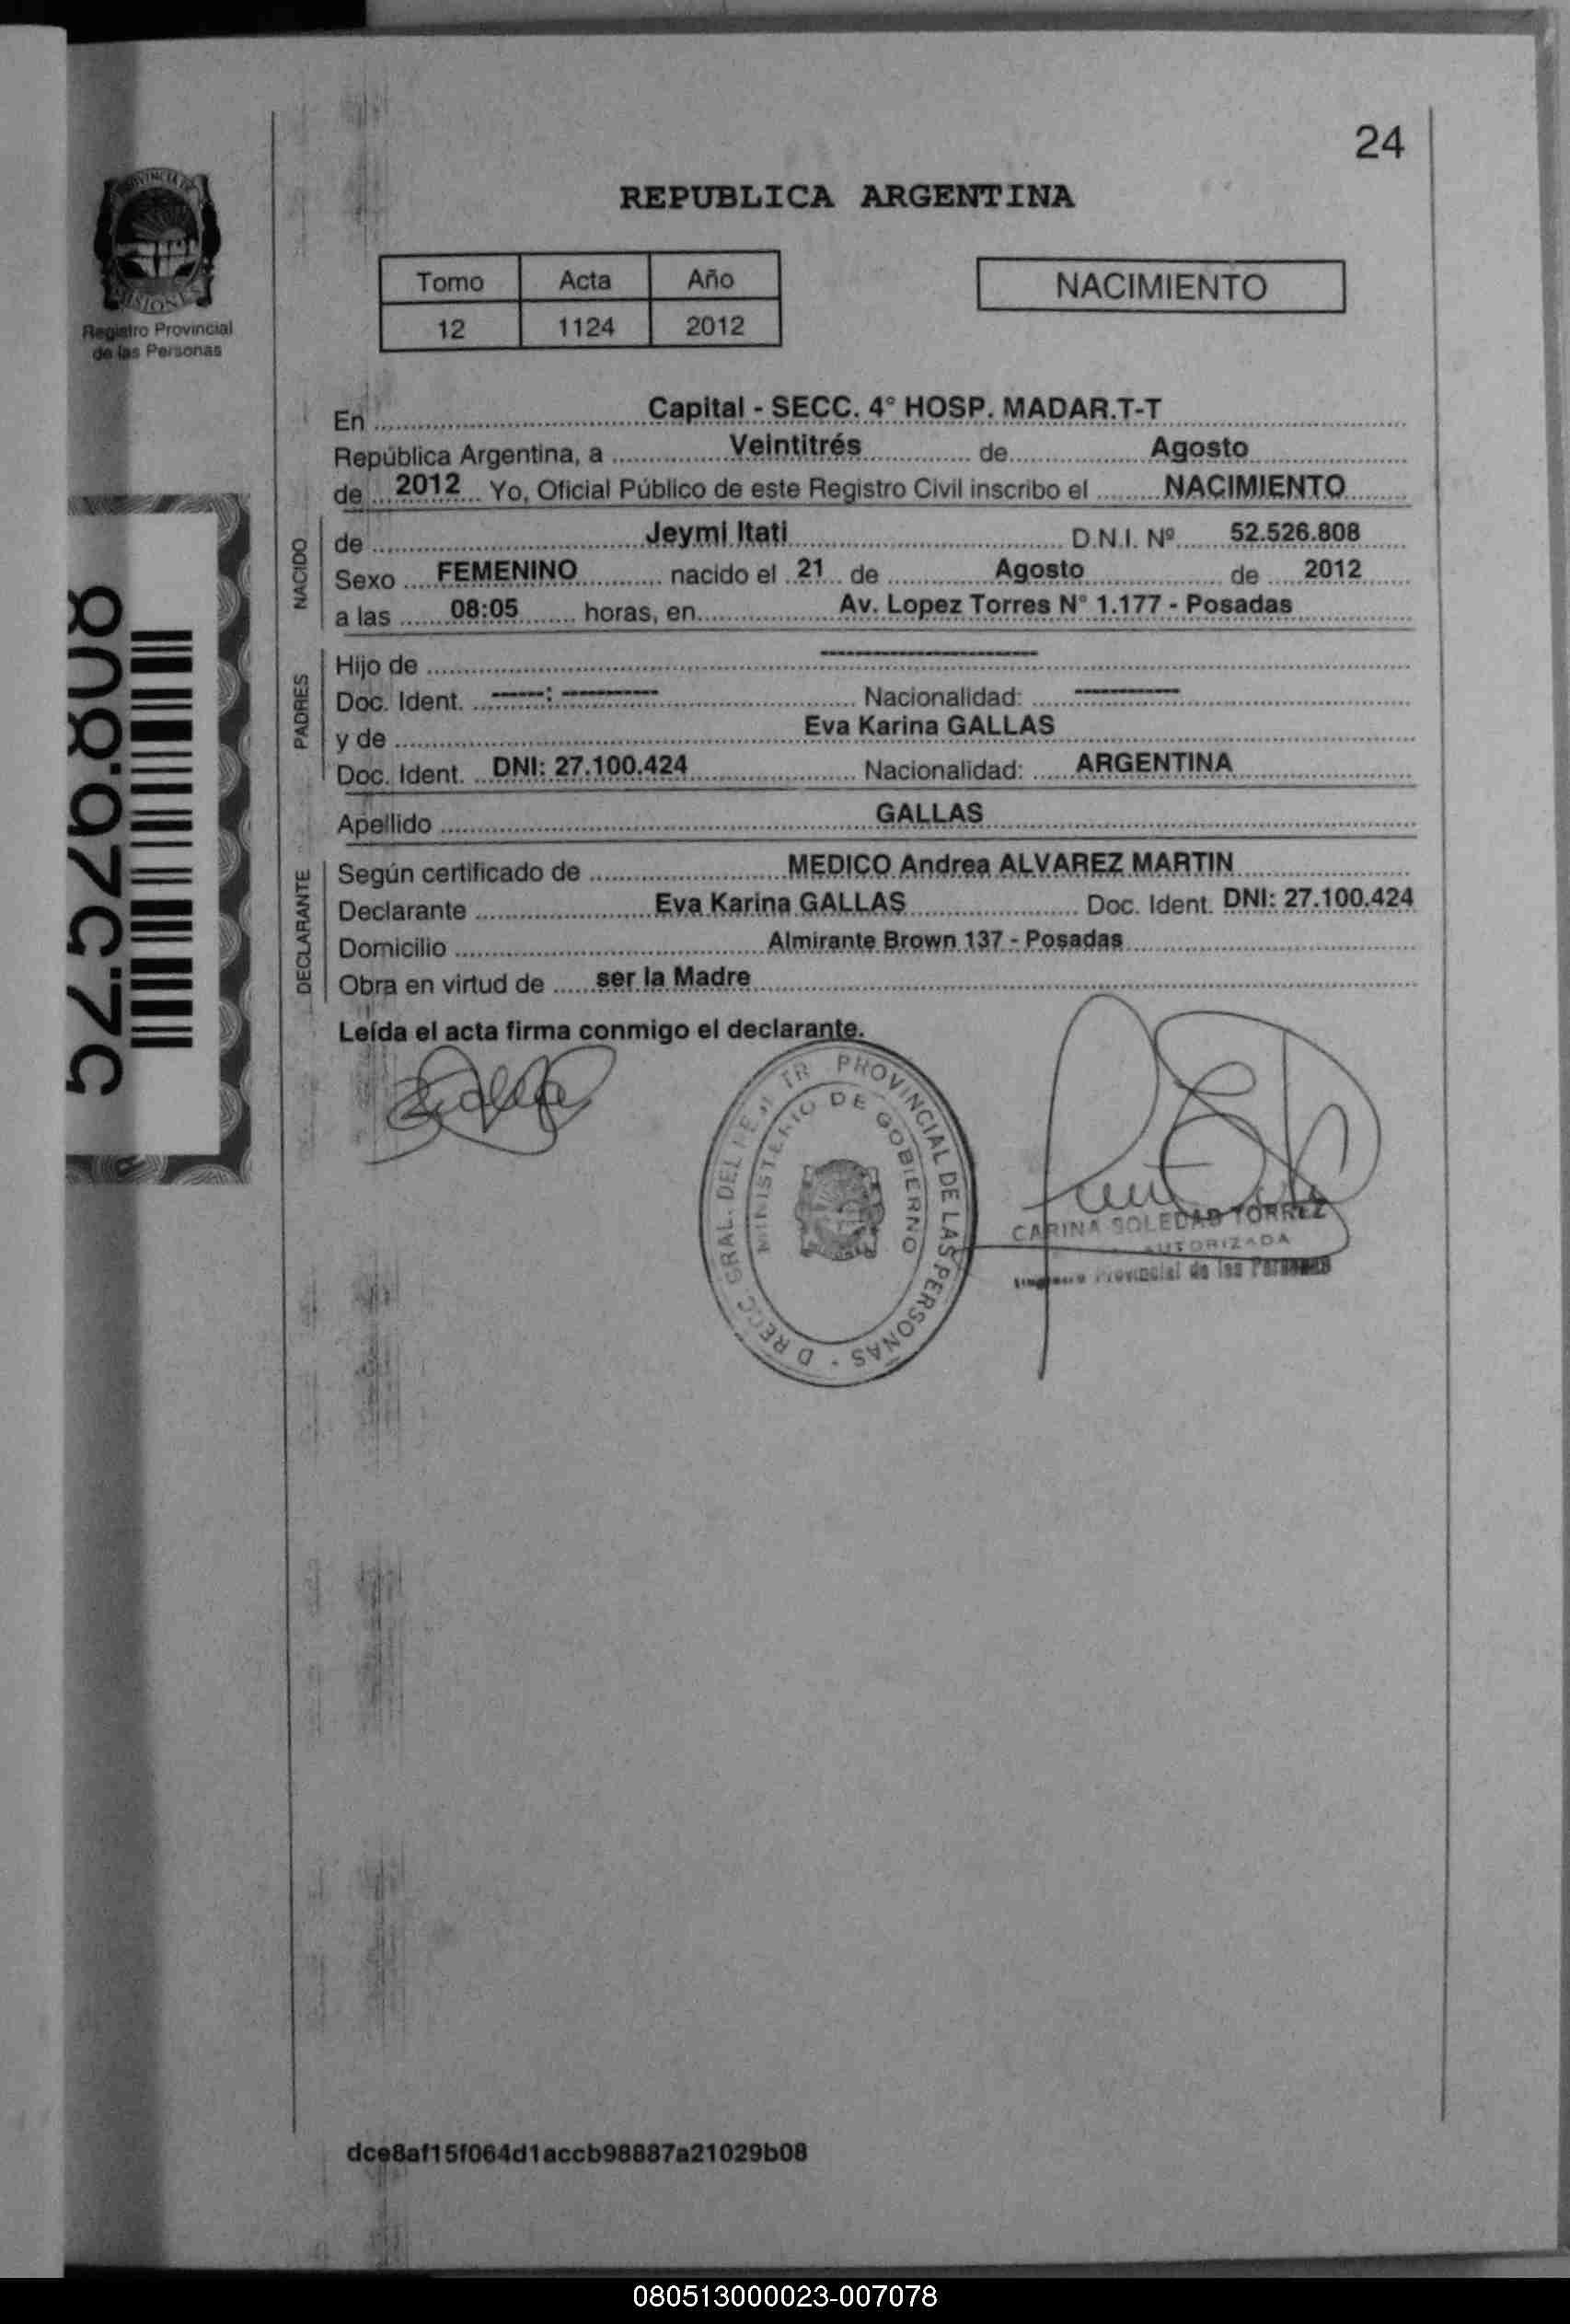 24
REPUBLICA ARGENTINA
Tomo Acta Año
12 1124 2012
NACIMIENTO
PROVINCIA DE
MISIONES
Registro Provincial
de las Personas
En Capital - SECC. 4° HOSP. MADAR.T-T
República Argentina, a Veintitrés de Agosto
de 2012 Yo, Oficial Público de este Registro Civil inscribo el NACIMIENTO
NACIDO
de Jeymi Itati D.N.I. Nº 52.526.808
Sexo FEMENINO nacido el 21 de Agosto de 2012
a las 08:05 horas, en Av. Lopez Torres N° 1.177 - Posadas
PADRES
Hijo de --------------------
Doc. Ident. -----: ---------- Nacionalidad: ----------
y de Eva Karina GALLAS
Doc. Ident. DNI: 27.100.424 Nacionalidad: ARGENTINA
Apellido GALLAS
DECLARANTE
Según certificado de MEDICO Andrea ALVAREZ MARTIN
Declarante Eva Karina GALLAS Doc. Ident. DNI: 27.100.424
Domicilio Almirante Brown 137 - Posadas
Obra en virtud de ser la Madre
Leída el acta firma conmigo el declarante.
PROVINCIAL DE LAS PERSONAS
GRAL. DEL
MINISTERIO DE GOBIERNO
CARINA SOLEDAD TORREZ
AUTORIZADA
Provincial de las Personas
dce8af15f064d1accb98887a21029b08
080513000023-007078